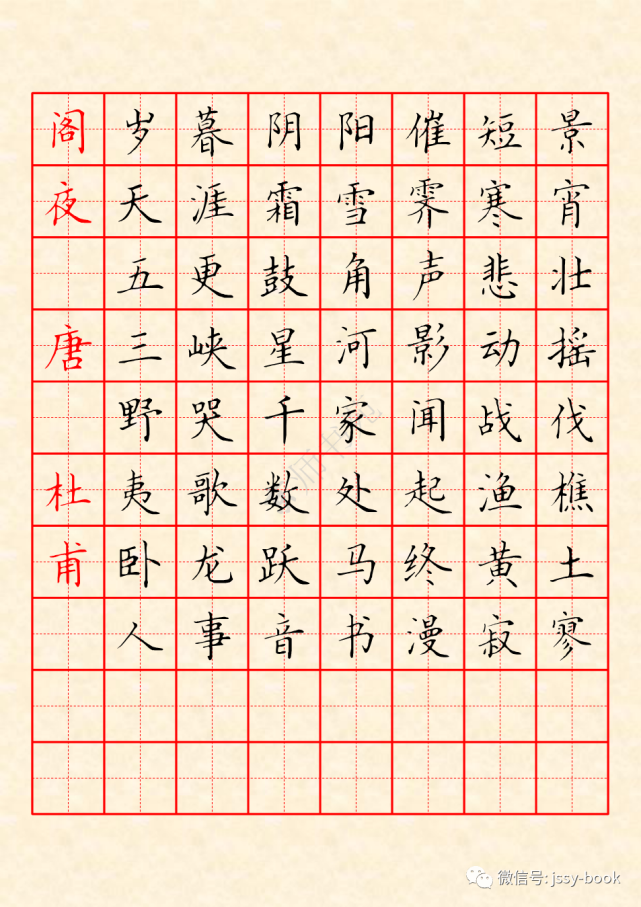 阁夜
唐
杜甫
岁暮阴阳催短景
天涯霜雪霁寒宵
五更鼓角声悲壮
三峡星河影动摇
野哭千家闻战伐
夷歌数处起渔樵
卧龙跃马终黄土
人事音书漫寂寥
微信号: jssy-book